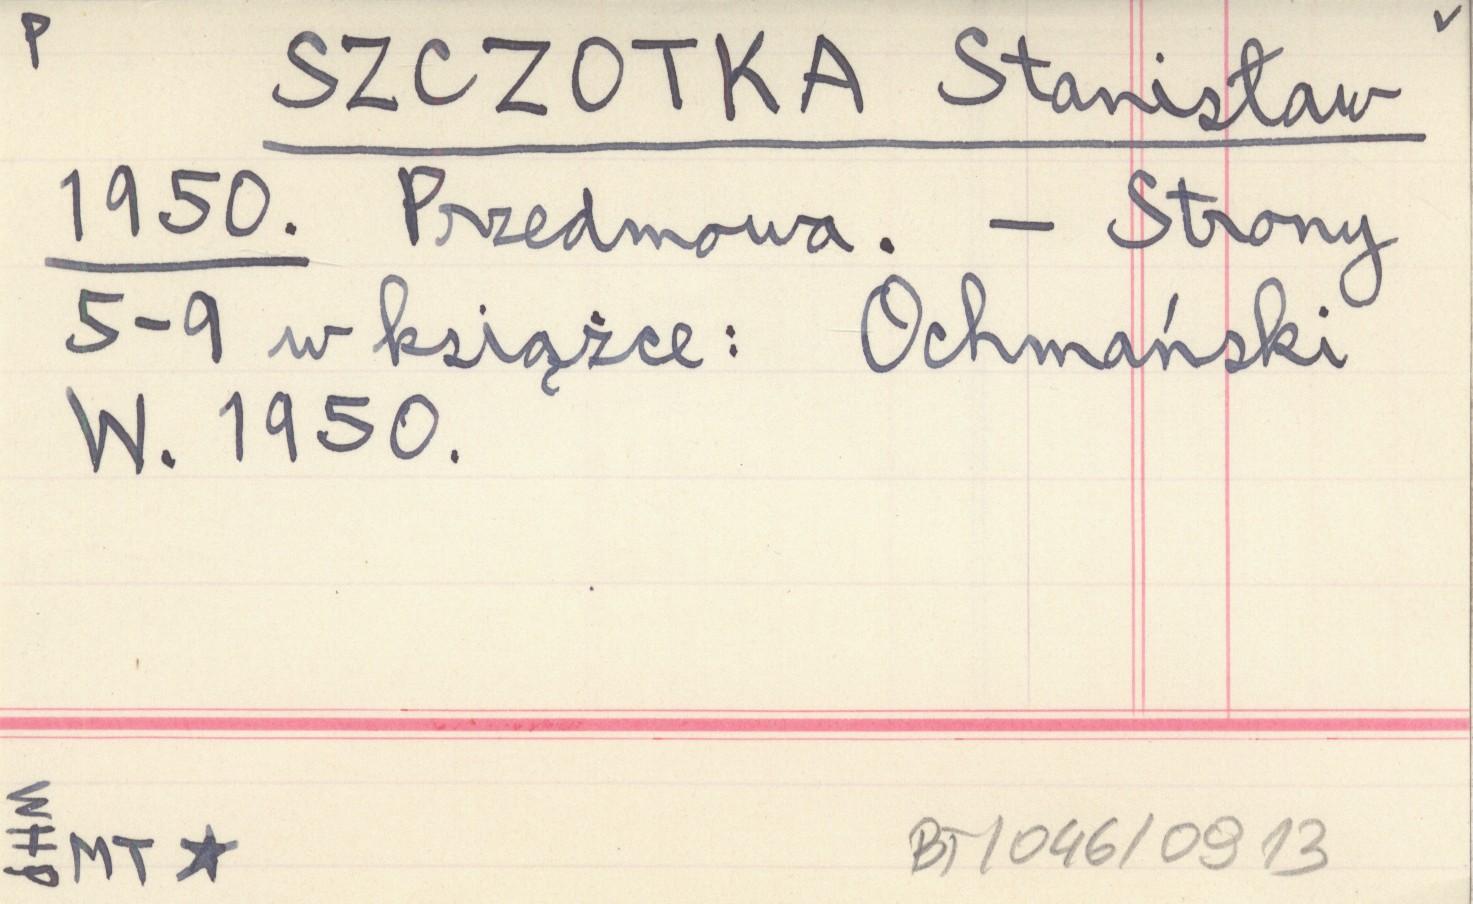 P
v
SZCZOTKA Stanisław
1950. Przedmowa. – Strony
5-9 w książce: Ochmański
W. 1950.
MT ★
BT/046/0913